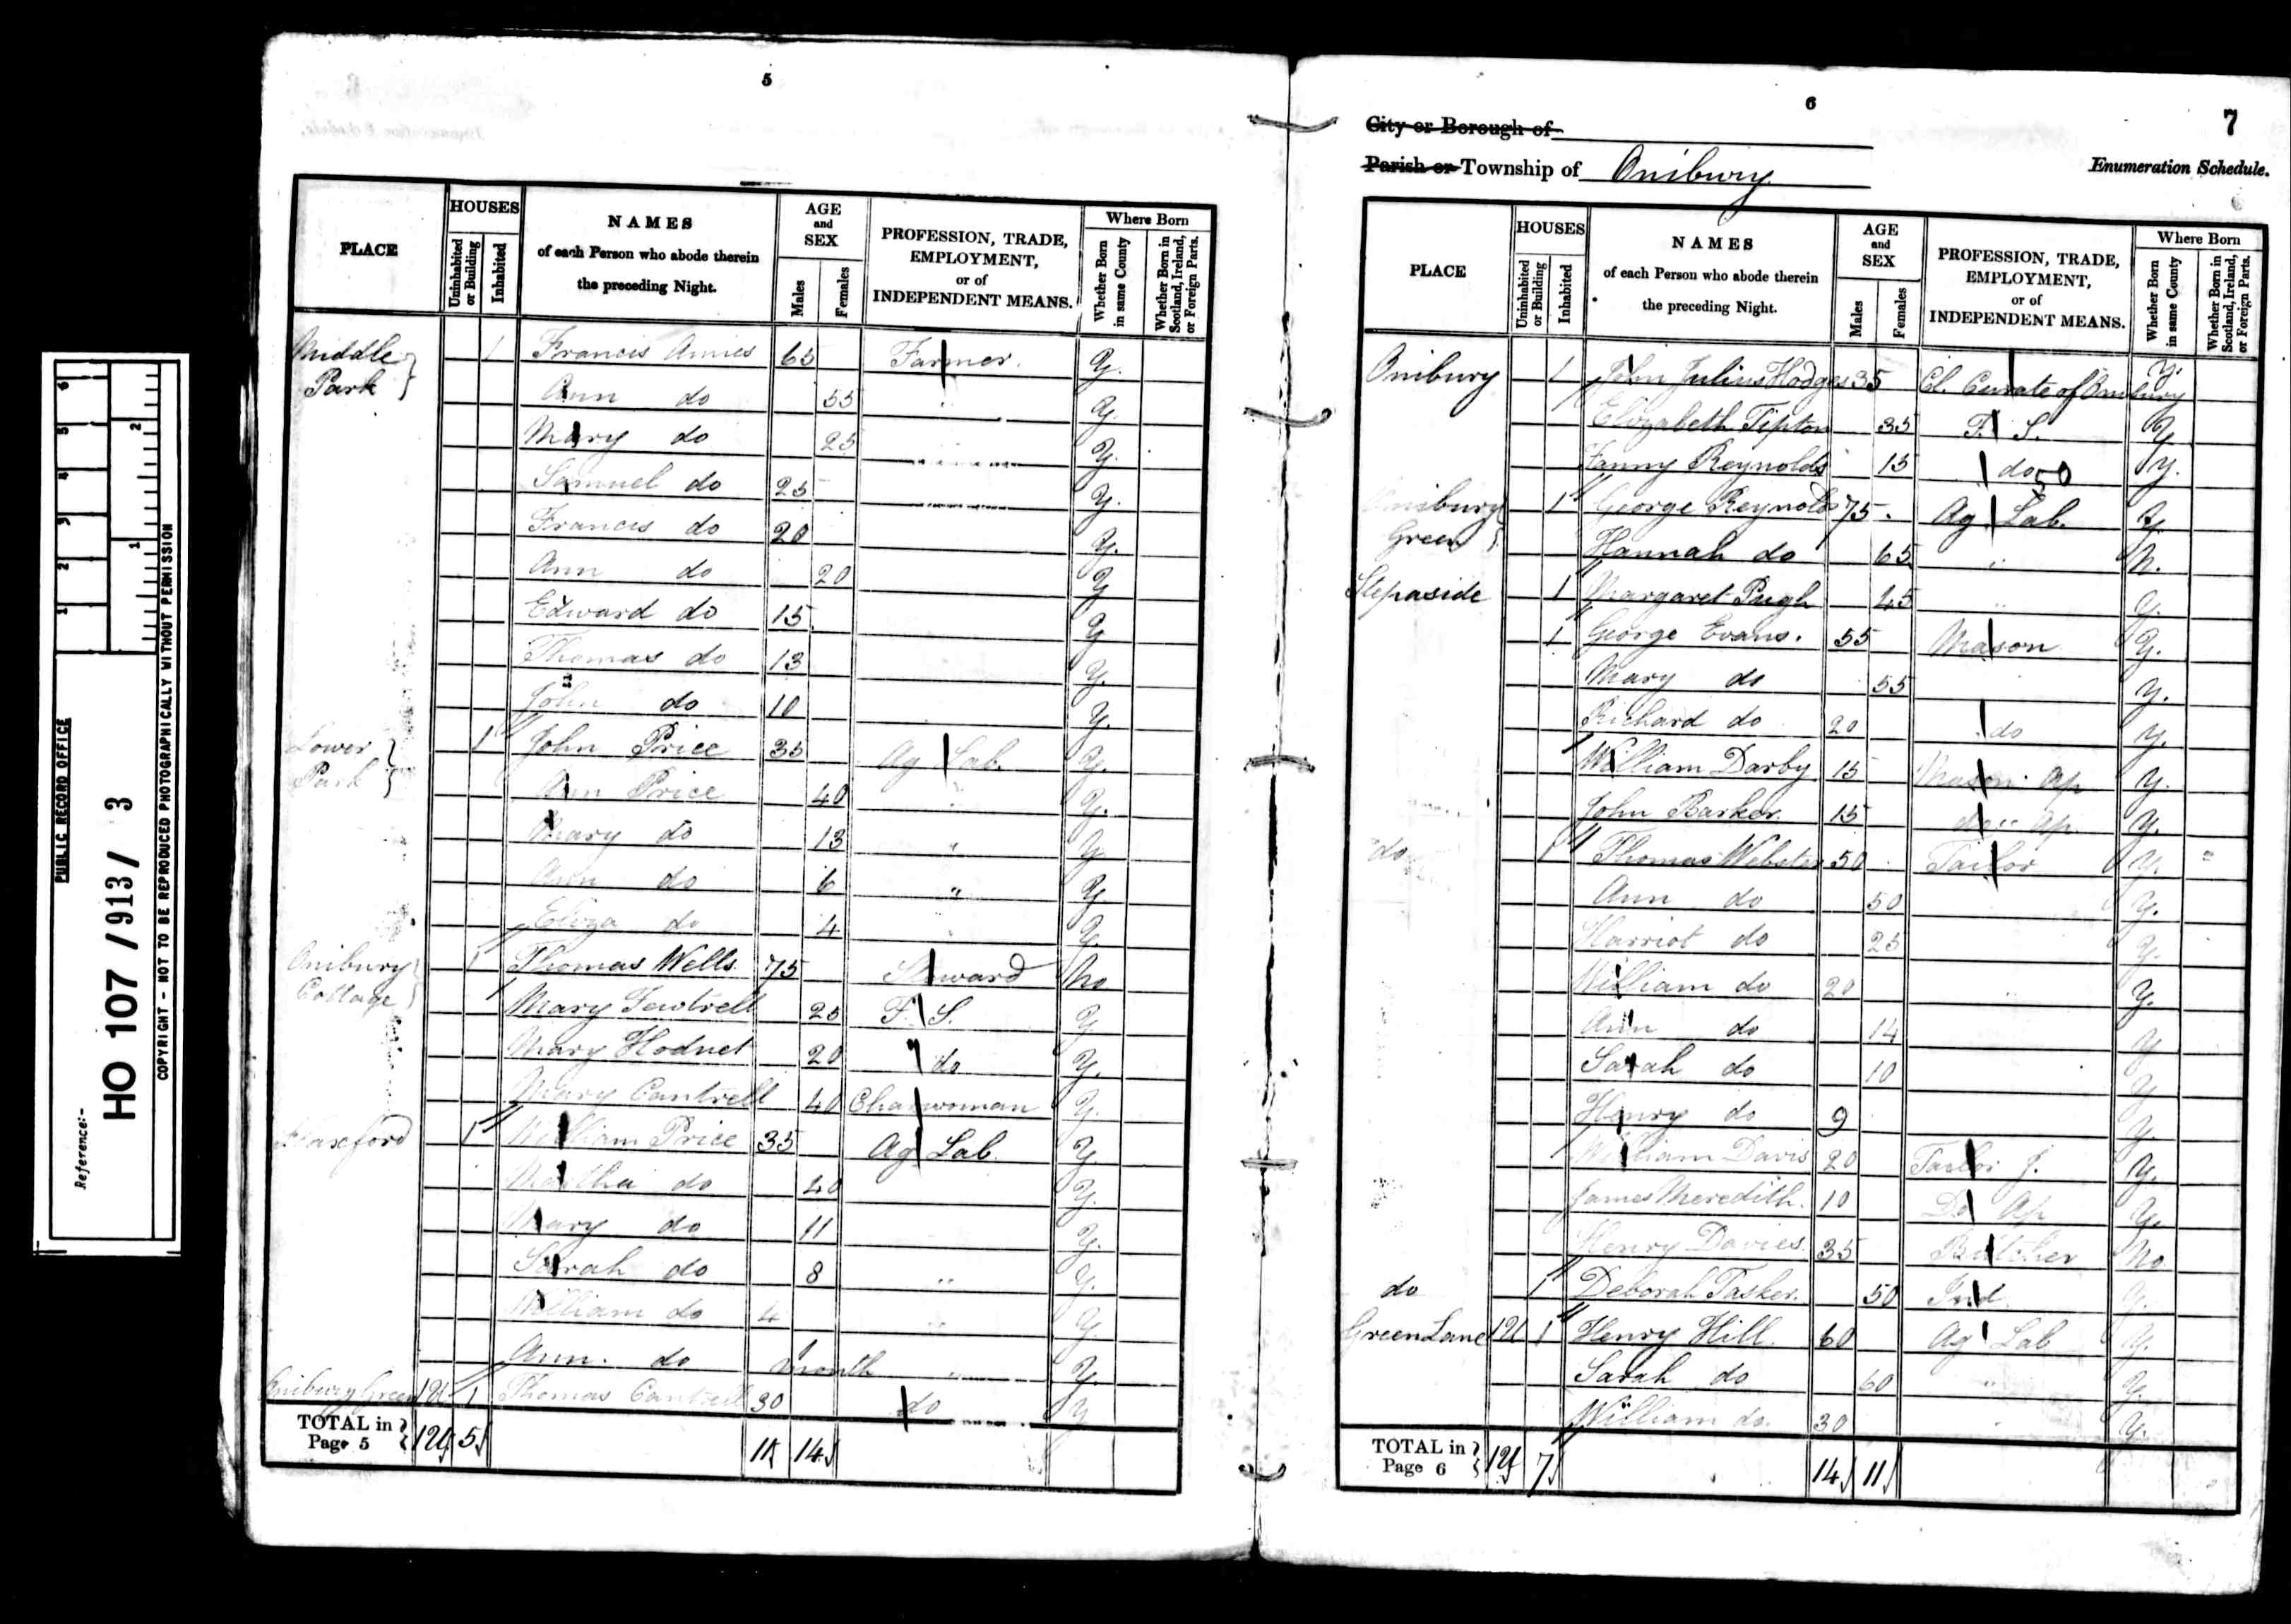 PUBLIC RECORD OFFICE
Reference:-
HO 107 / 913 / 3
COPYRIGHT - NOT TO BE REPRODUCED PHOTOGRAPHICALLY WITHOUT PERMISSION
1 2 3 4 5 6
1 2
5
PLACE
HOUSES
Uninhabited or Building
Inhabited
NAMES
of each Person who abode therein
the preceding Night.
AGE
and
SEX
Males
Females
PROFESSION, TRADE,
EMPLOYMENT,
or of
INDEPENDENT MEANS.
Where Born
Whether Born in same County
Whether Born in Scotland, Ireland, or Foreign Parts.
Middle 1 Francis Amies 65 Farmer. Y.
Park Ann do 55 Y.
Mary do 25 Y.
Samuel do 25 Y.
Francis do 20 Y.
Ann do 20 Y
Edward do 15 Y
Thomas do 13 Y.
John do 10 Y.
Lower 1 John Price 35 Ag Lab. Y.
Park Ann Price 40 " Y.
Mary do 13 " Y
Ann do 6 " Y
Eliza do 4 Y.
Onibury 1 Thomas Wells 75 Steward No
Cottage Mary Tewtrell 25 F. S. Y
Mary Hodnet 20 " do Y.
Mary Cantrell 40 Charwoman Y.
1 William Price 35 Ag Lab. Y
Martha do 40 Y.
Mary do 11 Y.
Sarah do 8 " Y.
William do 4 " Y
Ann. do month " Y.
Onibury Green 1U 1 Thomas Cantrell 30 do Y
TOTAL in
Page 5 1U 5 11 14
6
7
City or Borough of
Parish or Township of Onibury.
Enumeration Schedule.
PLACE
HOUSES
Uninhabited or Building
Inhabited
NAMES
of each Person who abode therein
the preceding Night.
AGE
and
SEX
Males
Females
PROFESSION, TRADE,
EMPLOYMENT,
or of
INDEPENDENT MEANS.
Where Born
Whether Born in same County
Whether Born in Scotland, Ireland, or Foreign Parts.
Onibury 1 John Julius Hodges 35 Cl. Curate of Onibury Y.
Elizabeth Tipton 35 F. S. Y
Fanny Reynolds 15 do 50 Y.
Onibury 1 George Reynolds 75 Ag. Lab. Y.
Green Hannah do 65 " N.
Stepaside 1 Margaret Pugh 45 " Y.
1 George Evans. 55 Mason Y.
Mary do 55 Y.
Richard do 20 do Y.
William Darby 15 Mason Ap Y.
John Barker. 15 do " Ap. Y.
do 1 Thomas Webster 50 Tailor Y. "
Ann do 50 Y.
Harriot do 25 Y.
William do 20 Y.
Ann do 14 Y
Sarah do 10 Y
Henry do 9 Y.
William Davis 20 Tailor J. Y.
James Meredith. 10 Do Ap Y.
Henry Davies 35 Butcher No
do 1 Deborah Tasker. 50 Ind. Y.
Green Lane 1U 1 Henry Hill. 60 Ag Lab Y.
Sarah do 60 " Y.
William do. 30 Y.
TOTAL in
Page 6 1U 7 14 11